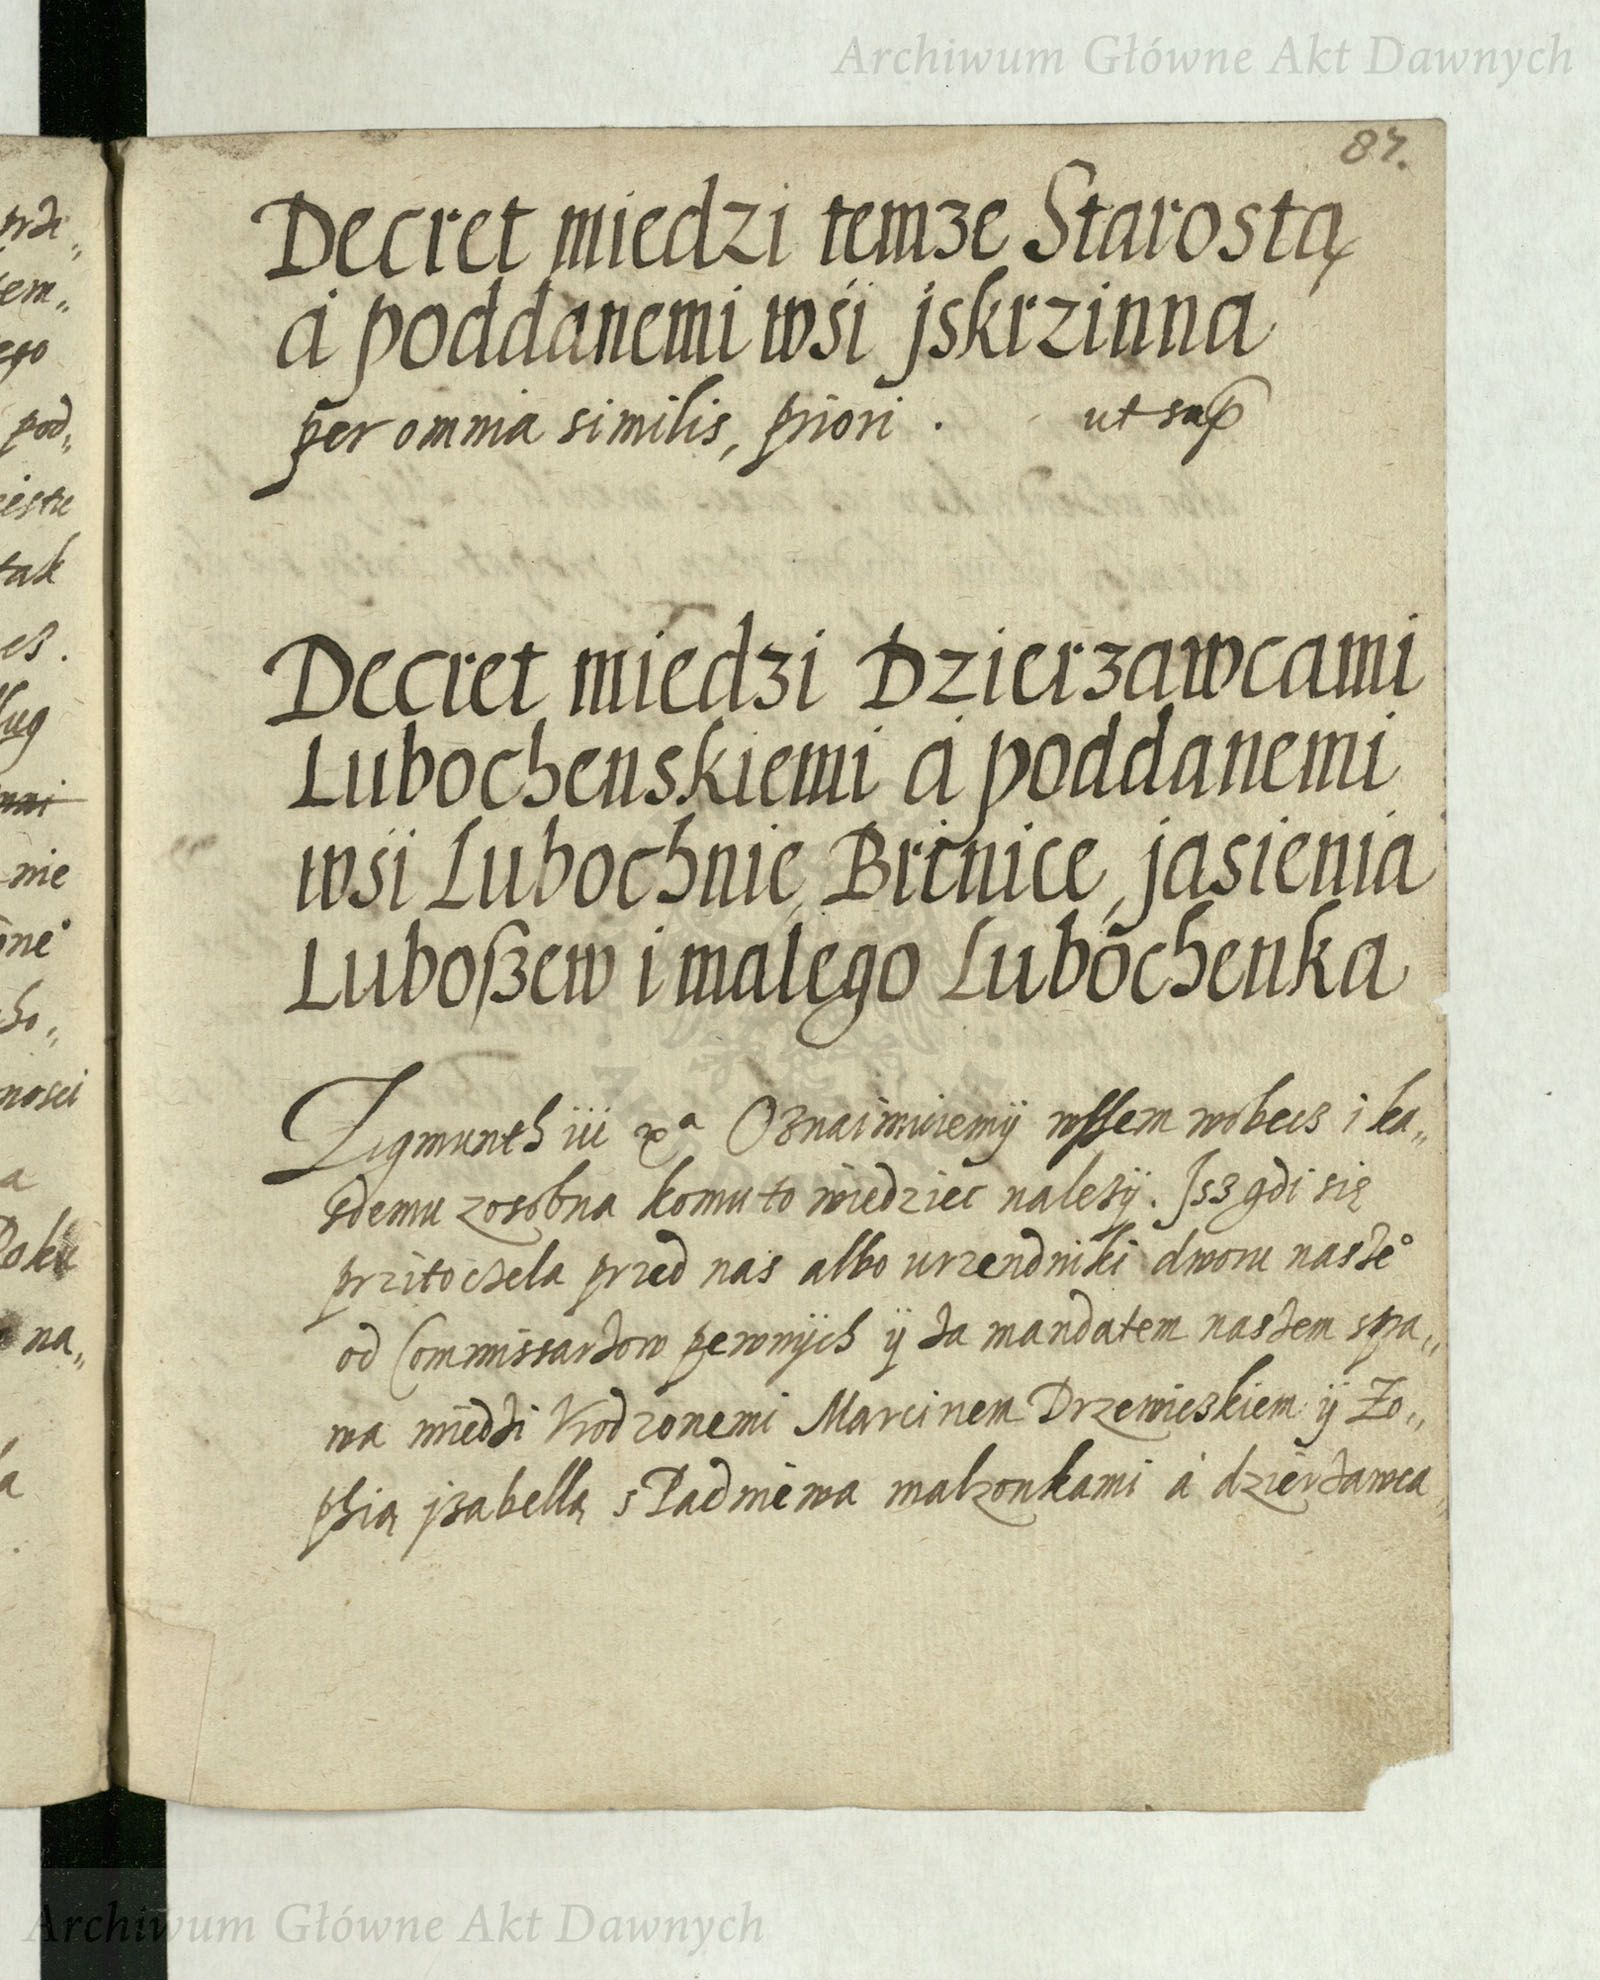 Archiwum Główne Akt Dawnych
87.
Decret miedzi temze Starostą
a poddanemi wśi jskrzinna
per omnia similis, priori . ut sup
Decret miedzi Dzierzawcami
Lubochenskiemi a poddanemi
wśi Lubochnie, Britnice, jasienia
Luboszew i malego Lubochenka
Zigmunth iii Oznaimuiemÿ wssem wobecz i ka„
zdemu zosobna komu to wiedziec nalezÿ. Jsz gdi się
przitoczela przed nas albo urzendniki dworu nasze°
od Commissarzow pewnÿch ÿ za mandatem naszem spra„
wa miedzi Vrodzonemi Marcinem Drzewieskiem ÿ Zo„
phią jzabellą s Padniewa malzonkami á dzierzawca„
prze„
tem„
ego
pod„
tak
es.
ług
nie
one°
cho„
nosci
a
Roku
na„
a
Archiwum Główne Akt Dawnych